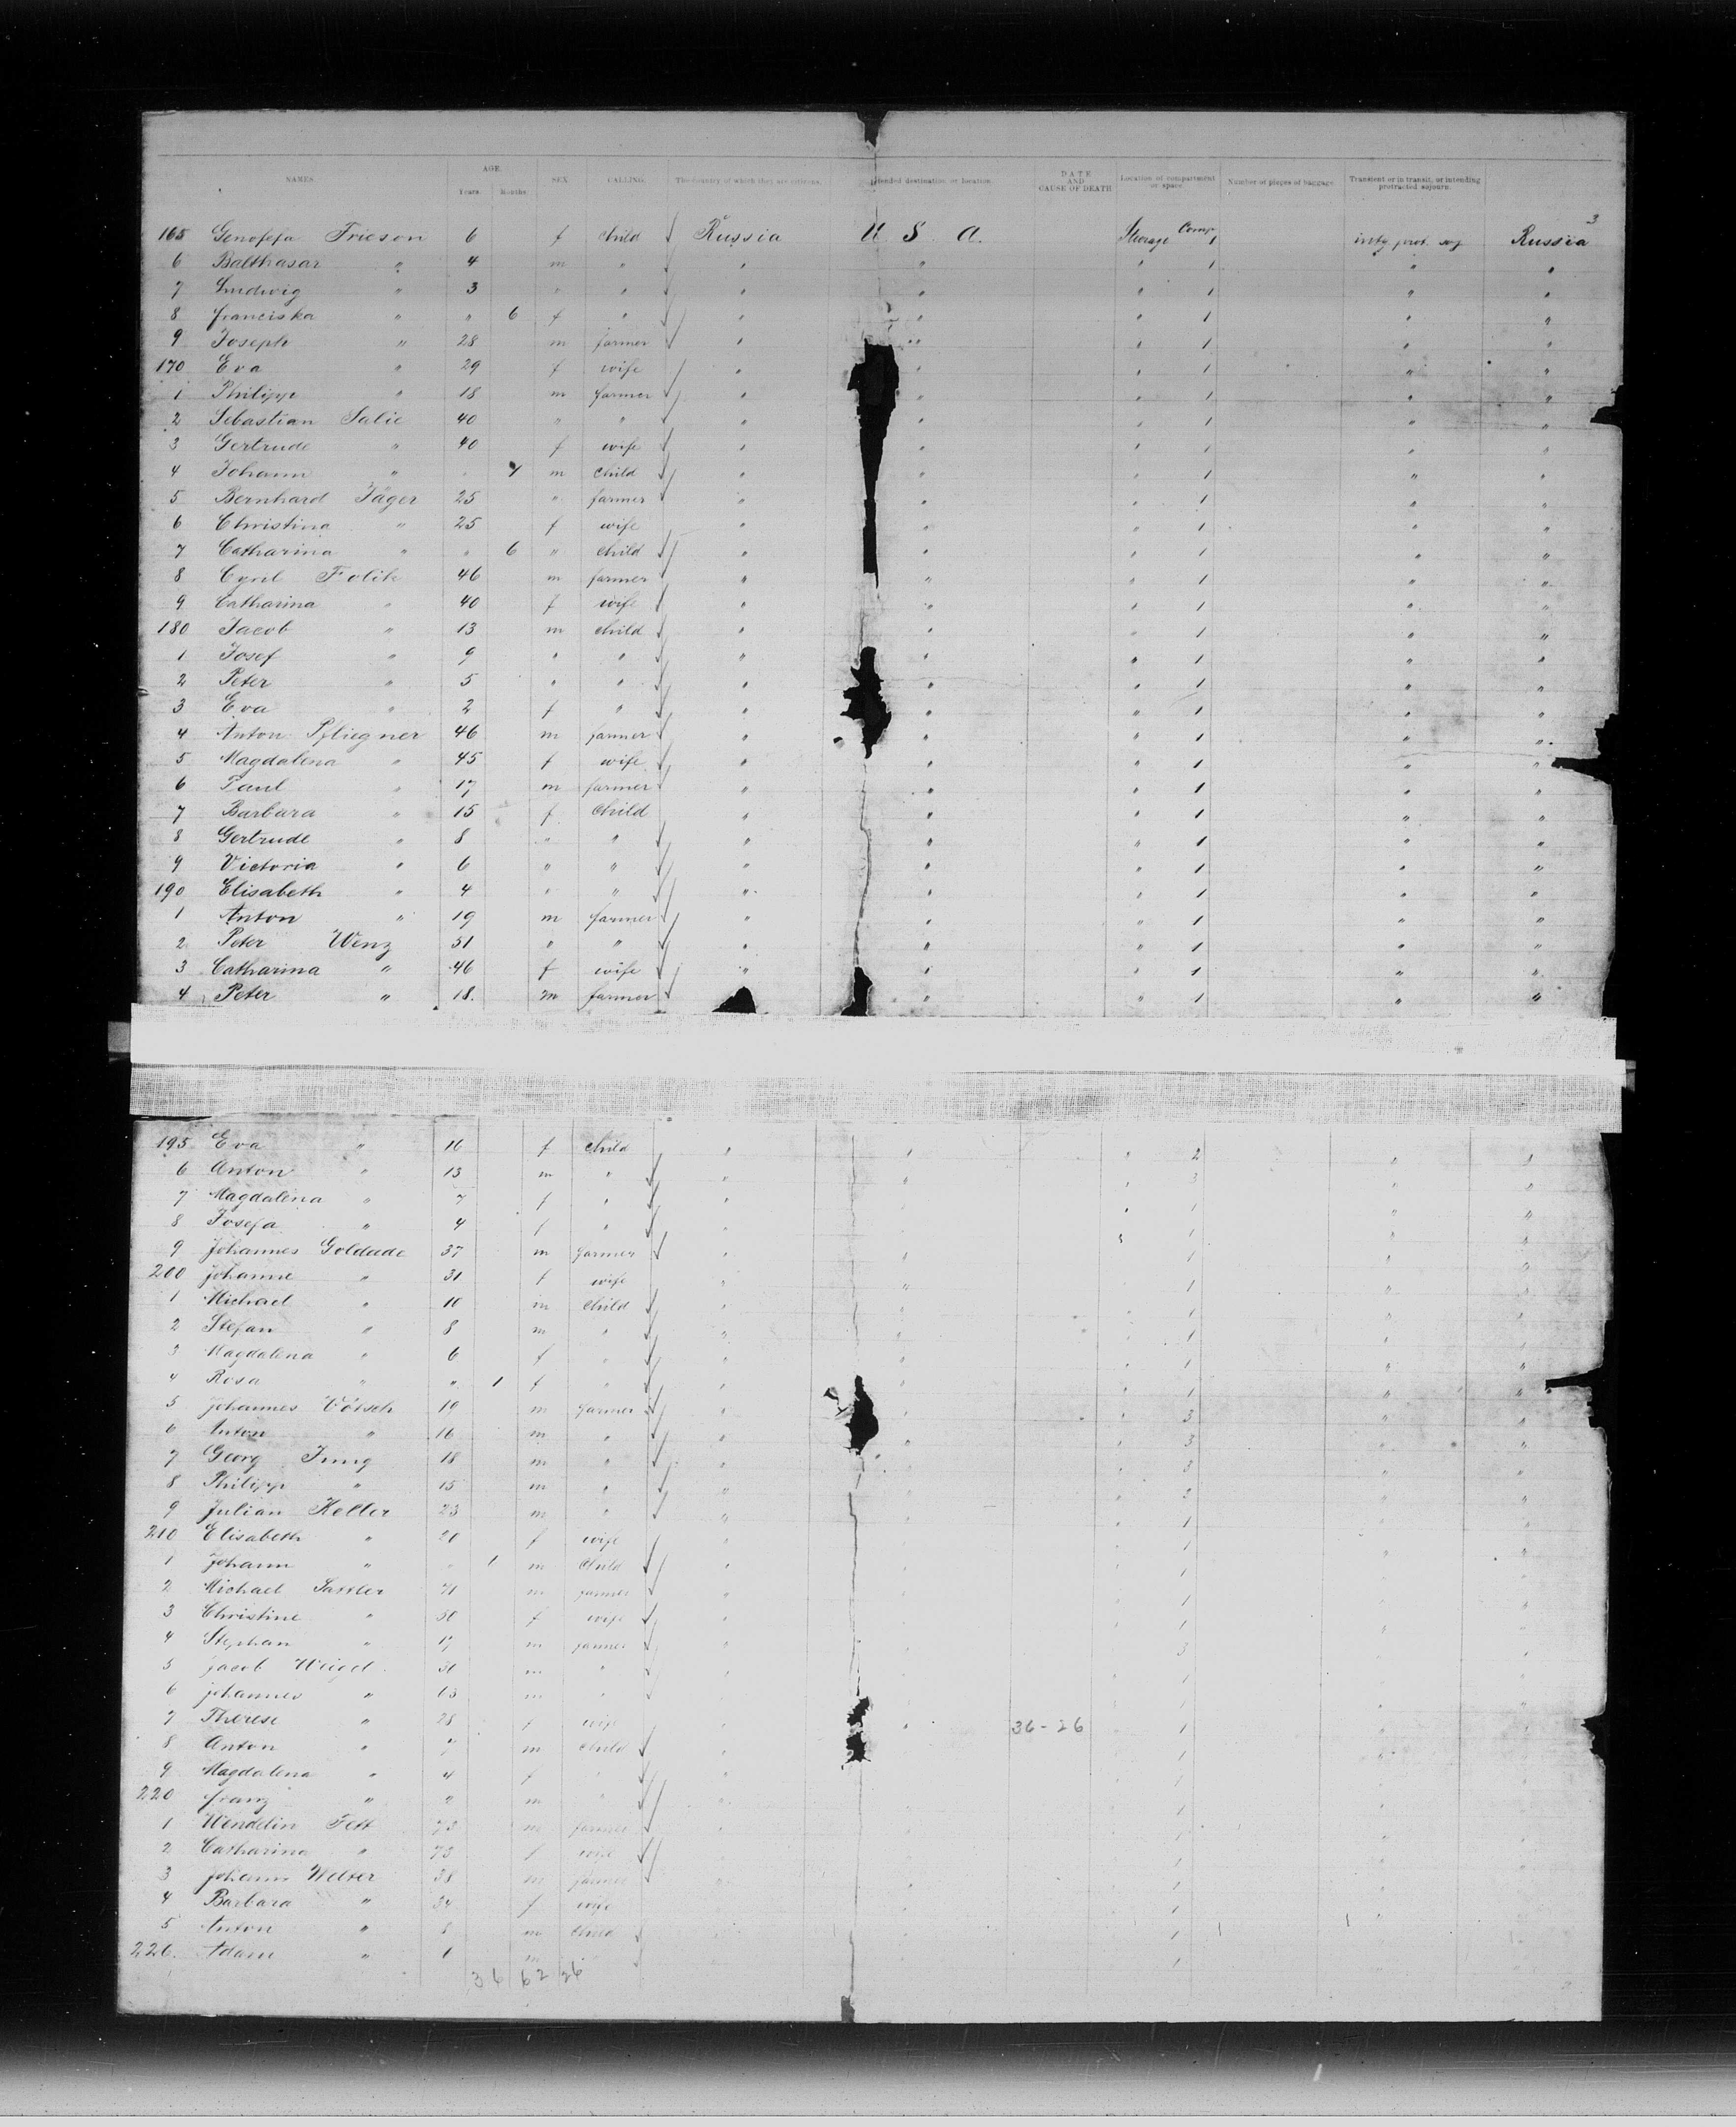 NAMES. AGE. SEX. CALLING. The country of which they are citizens. Intended destination or location. DATE AND CAUSE OF DEATH Location of compartment or space. Number of pieces of baggage. Transient or in transit, or intending protracted sojourn.
Years. Months.
3
165 Genofefa Frieson 6 f child √ Russia U. S. A. Steerage Comp. 1 intg prot. soj Russia
6 Balthasar " 4 m " √ " " " 1 " "
7 Ludwig " 3 " " √ " " " 1 " "
8 Franciska " " 6 f " √ " " " 1 " "
9 Joseph " 28 m farmer √ " " " 1 " "
170 Eva " 29 f wife " " " 1 " "
1 Philipp " 18 m farmer √ " " " 1 " "
2 Sebastian Salie 40 " " √ " " " 1 " "
3 Gertrude " 40 f wife √ " " " 1 " "
4 Johann " " m child √ " " " 1 " "
5 Bernhard Jäger 25 " farmer √ " " " 1 " "
6 Christina " 25 f wife " " " 1 " "
7 Catharina " " 6 " child √ " " " 1 " "
8 Cyril Folik 46 m farmer √ " " " 1 " "
9 Catharina " 40 f wife √ " " " 1 " "
180 Jacob " 13 m child √ " " " 1 " "
1 Josef " 9 " " √ " " " 1 " "
2 Peter " 5 " " √ " " " 1 " "
3 Eva " 2 f " √ " " " 1 " "
4 Anton Pfliegner 46 m farmer √ " " " 1 " "
5 Magdalena " 45 f wife √ " " " 1 " "
6 Paul " 17 m farmer √ " " " 1 " "
7 Barbara " 15 f child " " " 1 " "
8 Gertrude " 8 " " √ " " " 1 " "
9 Victoria " 6 " " √ " " " 1 " "
190 Elisabeth " 4 " " √ " " " 1 " "
1 Anton " 19 m farmer √ " " " 1 " "
2 Peter Wenz 51 " " √ " " " 1 " "
3 Catharina " 46 f wife √ " " " 1 " "
4 Peter " 18. m farmer √ " " 1 " "
195 Eva " 16 f child " " " 2 " "
6 Anton " 13 m " √ " " " 3 " "
7 Magdalena " 7 f " √ " " 1 " "
8 Josefa " 4 f " √ " " 1 " "
9 Johannes Goldade 37 m farmer √ " " 1 " "
200 Johanne " 31 f wife " " 1 " "
1 Michael " 10 m child √ " " " 1 " "
2 Stefan " 8 m " √ " " " 1 " "
3 Magdalena " 6 f " √ " " " 1 " "
4 Rosa " " 1 f " √ " " " 1 " "
5 Johannes Vötsch 19 m farmer √ " " " 3 " "
6 Anton " 16 m " √ " " " 3 " "
7 Georg Jung 18 m " √ " " " 3 " "
8 Philipp " 15 m " √ " " " 3 " "
9 Julian Keller 23 m " √ " " 1 " "
210 Elisabeth " 20 f wife " " 1 " "
1 Johann " " 1 m child √ " " 1 " "
2 Michael Sattler m farmer √ " 1 " "
3 Christine " 50 f wife √ " 1 " "
4 Stephan " 17 m farmer √ " 3 " "
5 Jacob Weigel m " √ " 1 "
6 Johannes " 13 m " √ 1 "
7 Therese " 28 f wife " " 36-26 1 " "
8 Anton " 7 m child √ " 1 "
9 Magdalena " 4 f " √ " 1
220 Franz " " m " √ " 1 "
1 Wendelin Fett 73 m farmer √ " 1
2 Catharina " 73 f wife √ 1
3 Johann Welter 38 m farmer √ " 1
4 Barbara " 34 f wife 1 "
5 Anton " 8 m child √ 1
226. Adam " 1 m √ 1
36 62 26